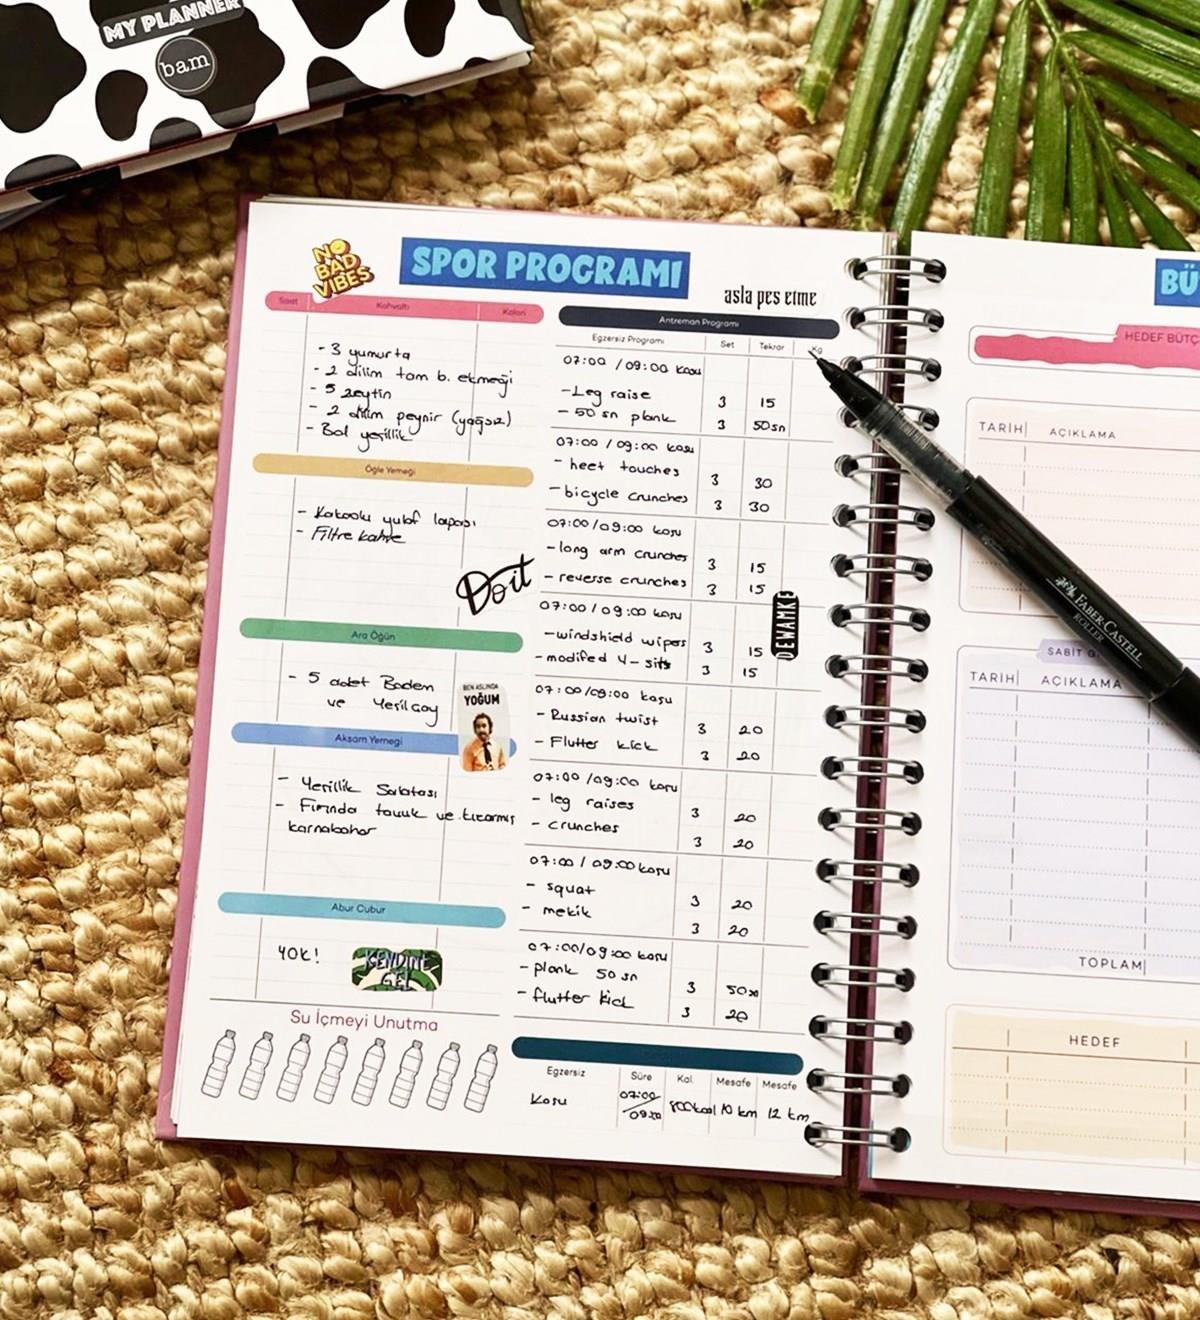 MY PLANNER
bam
NO
BAD
VIBES
SPOR PROGRAMI
asla pes etme
Saat Kahvaltı Kalori
- 3 yumurta
- 2 dilim tam b. ekmeği
- 5 zeytin
- 2 dilim peynir (yağsız)
- Bol yeşillik
Öğle Yemeği
- Kakaolu yulaf lapası
- Filtre kahve
Do it
Ara Öğün
- 5 adet Badem
ve Yeşilçay
BEN ASLINDA
YOĞUM
Akşam Yemeği
- Yeşillik Salatası
- Fırında tavuk ve kızarmış
karnabahar
Abur Cubur
YOK!
KENDİNE
GEL
Su İçmeyi Unutma
Antreman Programı
Egzersiz Programı Set Tekrar Kg
07:00 / 09:00 koşu
- Leg raise 3 15
- 50 sn plank 3 50sn
07:00 / 09:00 koşu
- heet touches 3 30
- bicycle crunches 3 30
07:00 / 09:00 koşu
- long arm crunches 3 15
- reverse crunches 3 15
07:00 / 09:00 koşu
- windshield wipers 3 15
- modifed V-sits 3 15
DEWAMKE
07:00 / 09:00 koşu
- Russian twist 3 20
- Flutter kick 3 20
07:00 / 09:00 koşu
- leg raises 3 20
- crunches 3 20
07:00 / 09:00 koşu
- squat 3 20
- mekik 3 20
07:00 / 09:00 koşu
- plank 50 sn 3 50sn
- flutter kick 3 20
Egzersiz Süre Kal. Mesafe Mesafe
Koşu 07:00 / 09:00 800kcal 10 km 12 km
FABER-CASTELL
ROLLER
BÜ
HEDEF BÜTÇ
TARİH AÇIKLAMA
SABİT G
TARİH AÇIKLAMA
TOPLAM
HEDEF